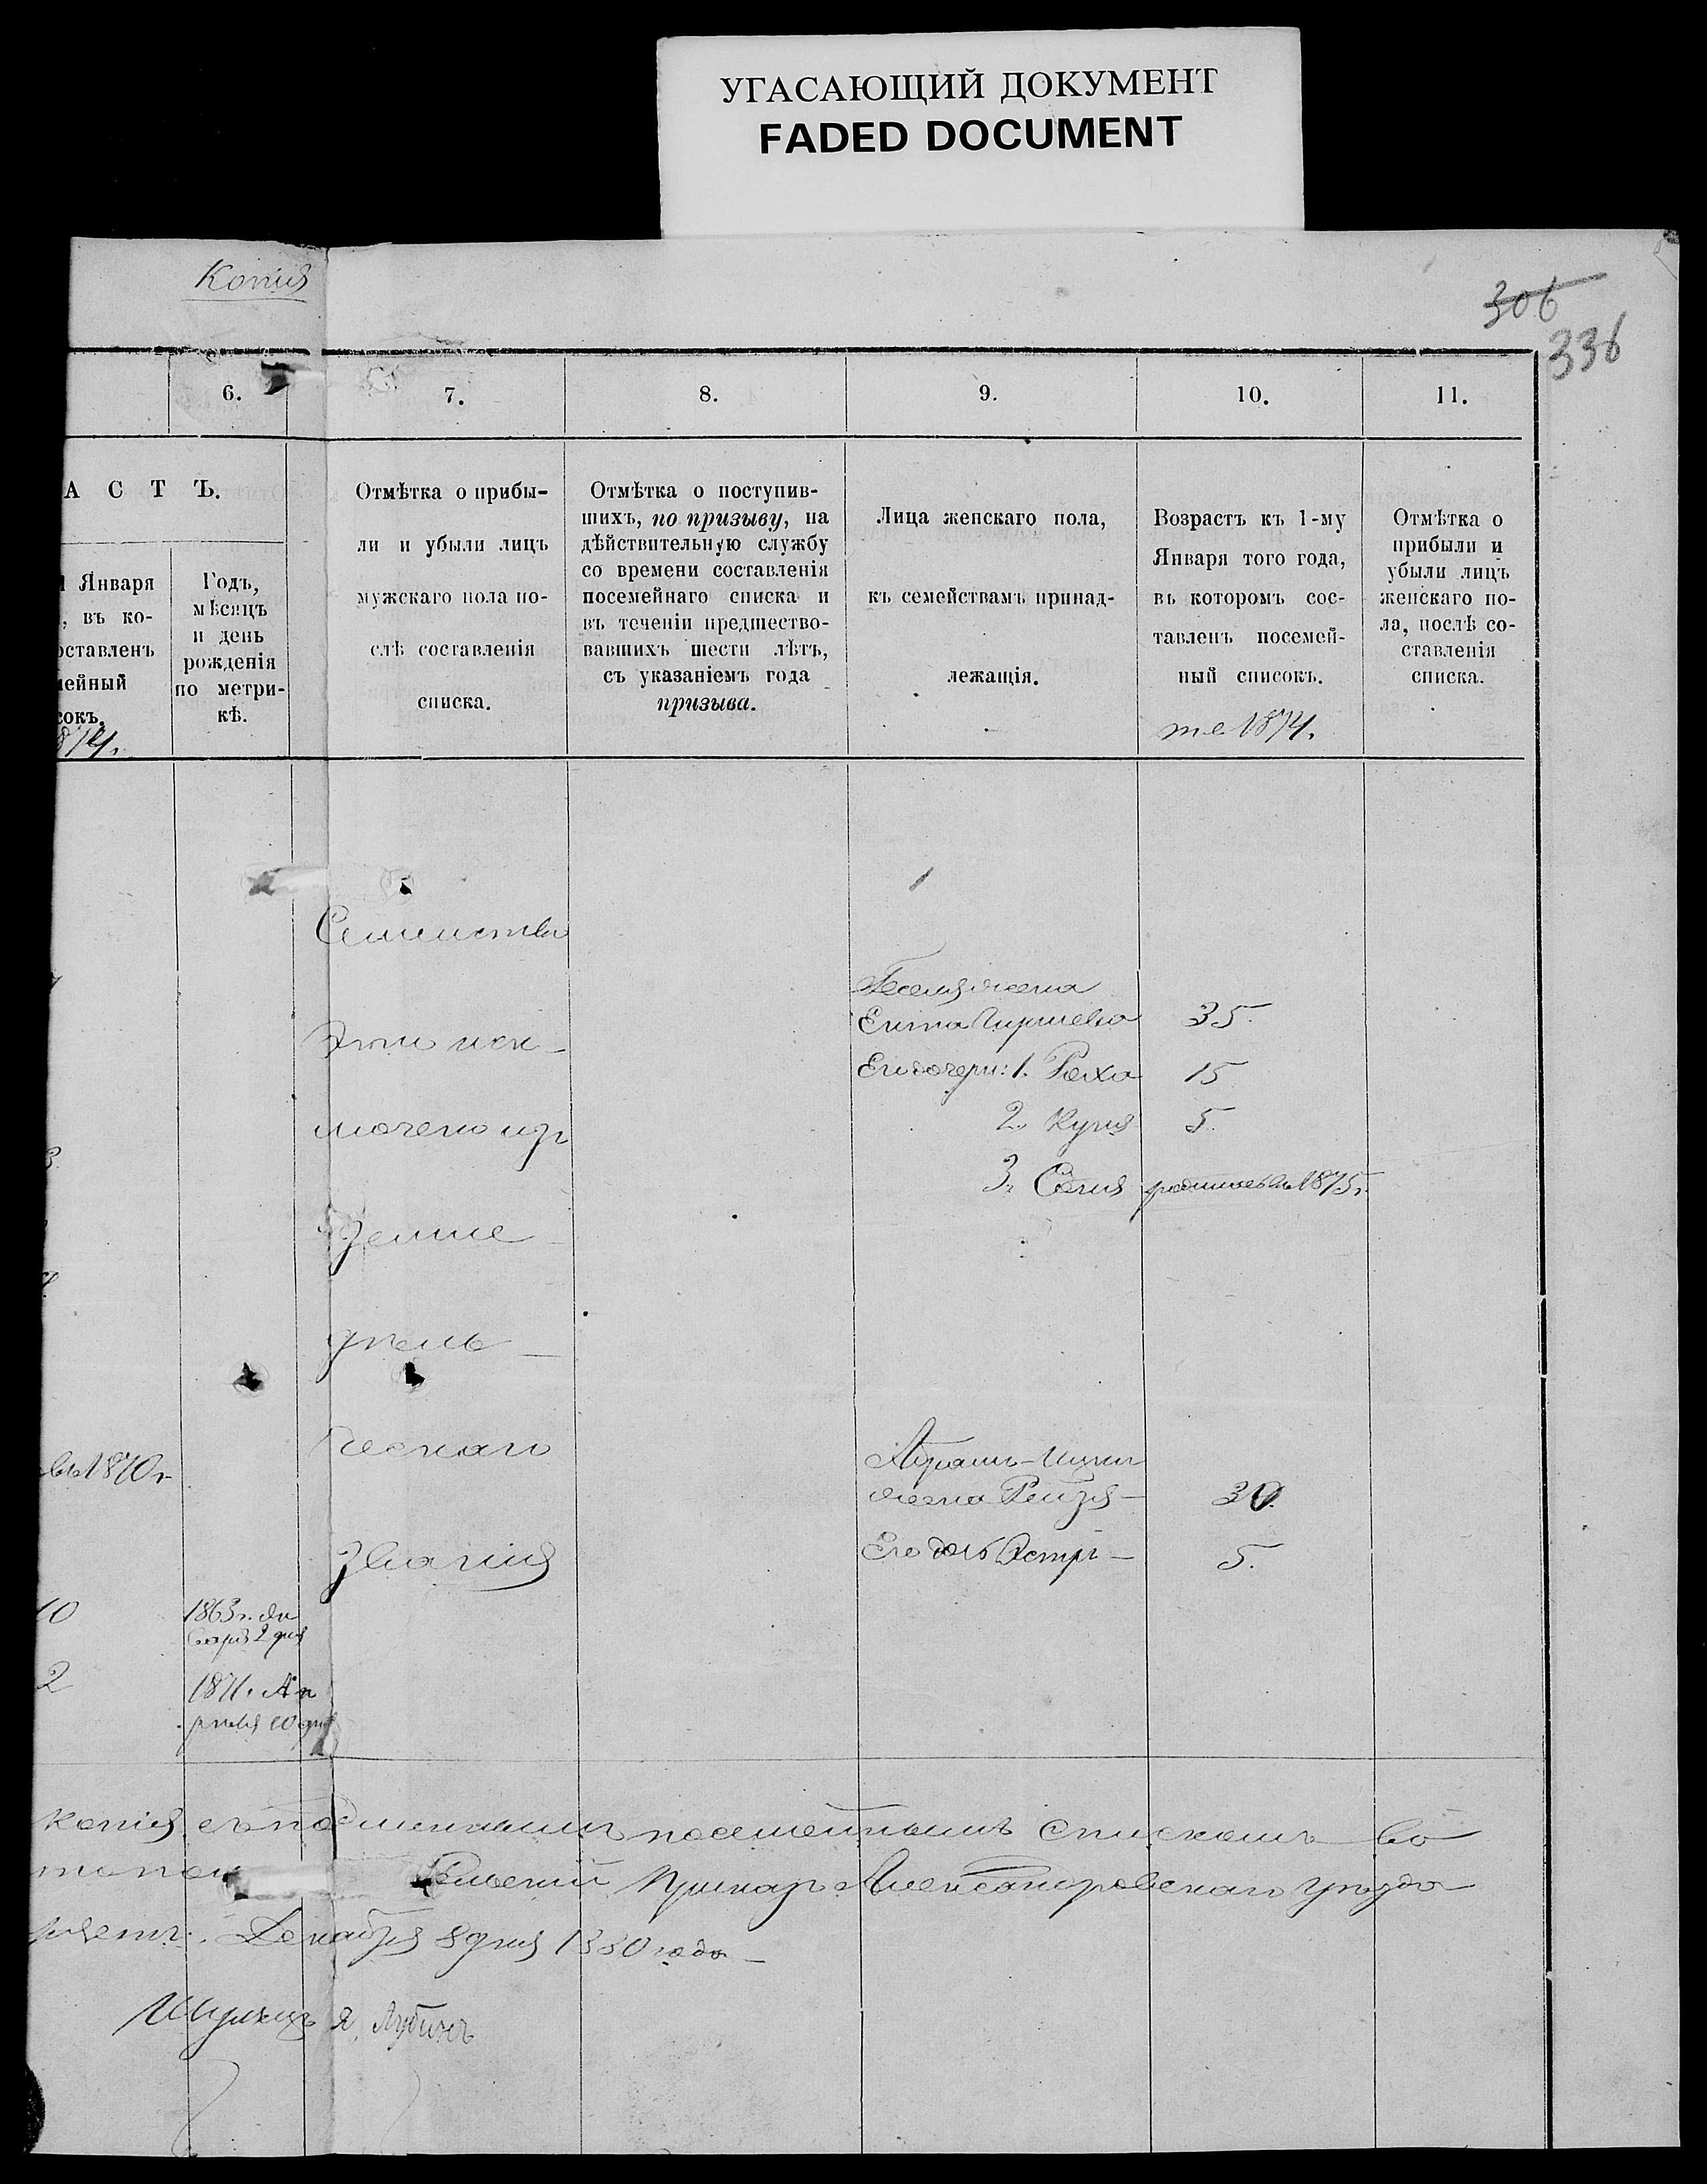 УГАСАЮЩИЙ ДОКУМЕНТ
FADED DOCUMENT
Копія
306
336
6.
7.
8.
9.
10.
11.
А С Т Ъ.
1 Января
, въ ко-
оставленъ
мейный
сокъ.
1874.
Годъ,
мѣсяцъ
и день
рожденія
по метри-
кѣ.
Отмѣтка о прибы-
ли и убыли лицъ
мужскаго пола по-
слѣ составленія
списка.
Отмѣтка о поступив-
шихъ, по призыву, на
дѣйствительную службу
со времени составленія
посемейнаго списка и
въ теченіи предшество-
вавшихъ шести лѣтъ,
съ указаніемъ года
призыва.
Лица женскаго пола,
къ семействамъ принад-
лежащія.
Возрастъ къ 1-му
Января того года,
въ которомъ сос-
тавленъ посемей-
ный списокъ.
1874.
Отмѣтка о
прибыли и
убыли лицъ
женскаго по-
ла, послѣ со-
ставленія
списка.
Семейство
Эти иск-
лючено изъ
земле-
дѣль-
ческаго
званія
жена
35.
Его дочери: 1. Рыха 15
2. Куня 5.
3. Сѣня родилась въ 1875 г.
въ 1870 г
жена Рейзя - 30.
Его дочь Эстръ - 5.
10 1863 г. Ян
варя 2 дня
2 1871. Ап
рѣля 10 дня
копія съ подлиннымъ посемейнымъ спискомъ во
Приказъ Александровскаго уѣзда
Декабря 8 дня 1880 года
Шульцъ Я. Лубинъ